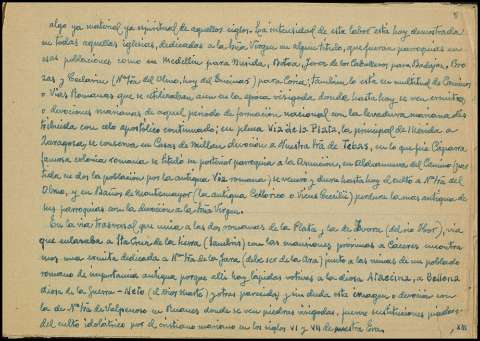 algo ya material ya espiritual de aquellos siglos. La intensidad de esta labor está hoy demostrada
en todas aquellas iglesias, dedicadas a la Virgen en algún título, que fueran parroquias en
esas poblaciones como en Medellín para Mérida, Botoa, Jerez de los Caballeros para Badajoz, Bro
zas y Ceclavín (Ntra Sra del Olmo, hoy del Encinar) para Coria; también lo está en multitud de Caminos
o Vías Romanas que se utilizaban aun en la época visigoda, donde hasta hoy se ven ermitas
o devociones marianas de aquel periodo de formación nacional con la levadura mariana dis
tribuida con celo apostólico continuado; en plena Vía de la Plata, la principal de Mérida a
Zaragoza, se conserva en Casas de Millán devoción a Nuestra Sra de Tebas, en la que fue Cáparra
famosa colonia romana se tituló su posterior parroquia a la Asunción, en Aldeanueva del Camino (par
tida en dos la población por la antigua Vía romana) se veneró y dura hasta hoy el culto a Ntra Sra del
Olmo, y en Baños de Montemayor (la antigua o Vicus Cecilii) perdura la mas antigua de
sus parroquias con la devoción a la Virgen.
En la vía trasversal que unía a las dos romanas de la Plata y la de (del río Ibor), vía
que enlazaba a Sta Cruz de la Sierra con las mansiones proximas a Cáceres encontra
mos una ermita dedicada a Ntra Sra de la Jara (debe ser de la Ara) junto a las ruinas de un poblado
romano de importancia antigua porque allí hay lápidas votivas a la diosa Ataecina, a Belona
diosa de la Guerra - Neto (el Dios Marte) y otras parecidas; y sin duda esta imagen o devoción con
la de Ntra Sra de Valparaiso en donde se ven piedras visigodas, fueron sustituciones piadosas
del culto idolátrico por el cristiano mariano en los siglos VI y VII de nuestra Era.